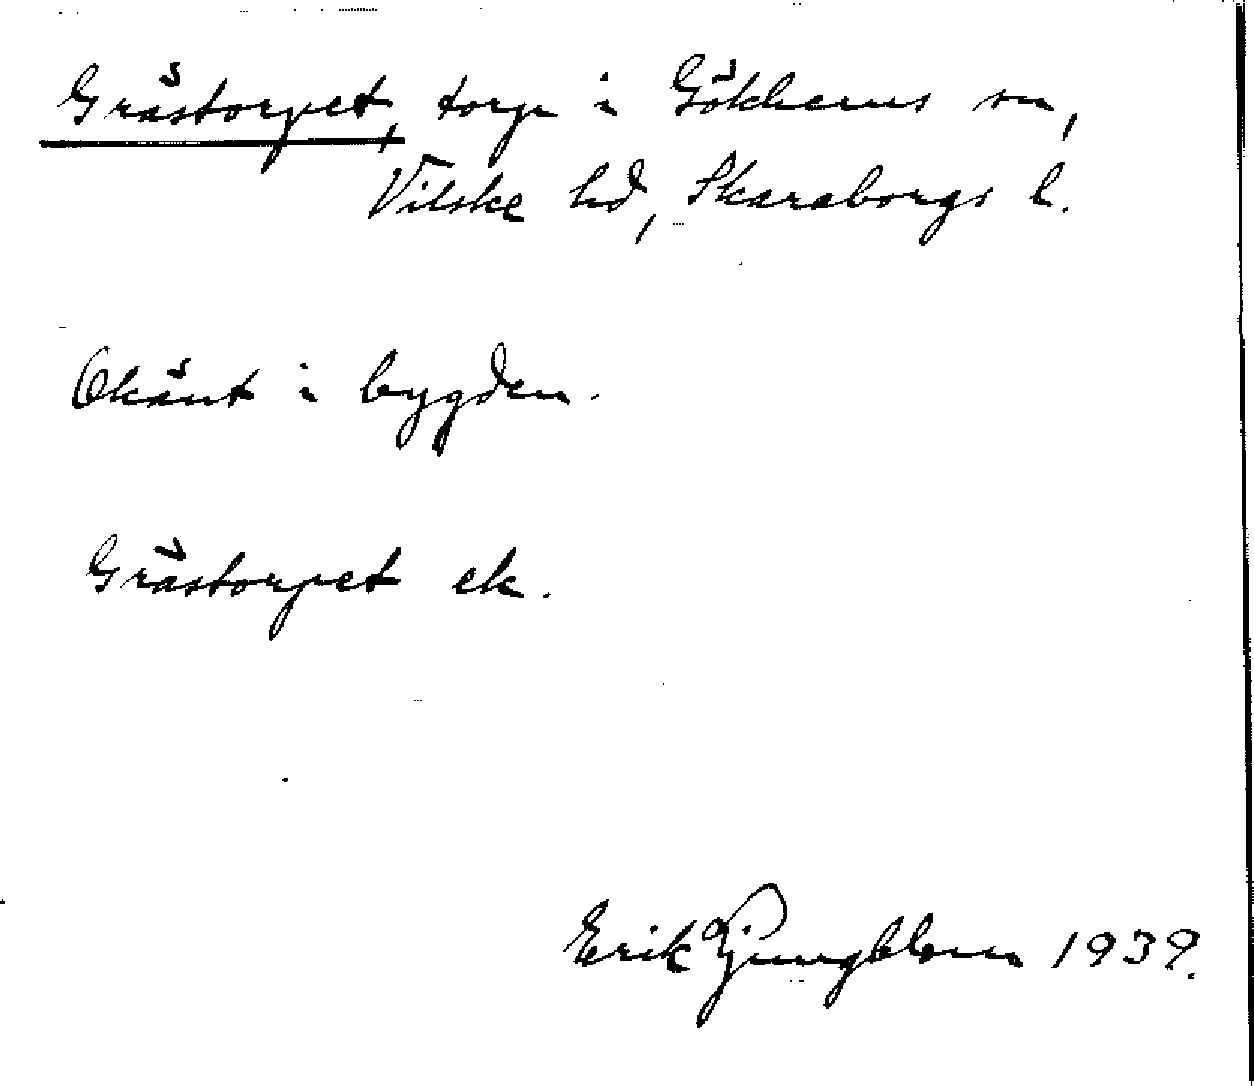 Grästorpet, torp i Gökhems sn,
Vilske hd, Skaraborgs l.
Okänt i bygden.
Grästorpet ek.
Erik Ljungblom 1939.